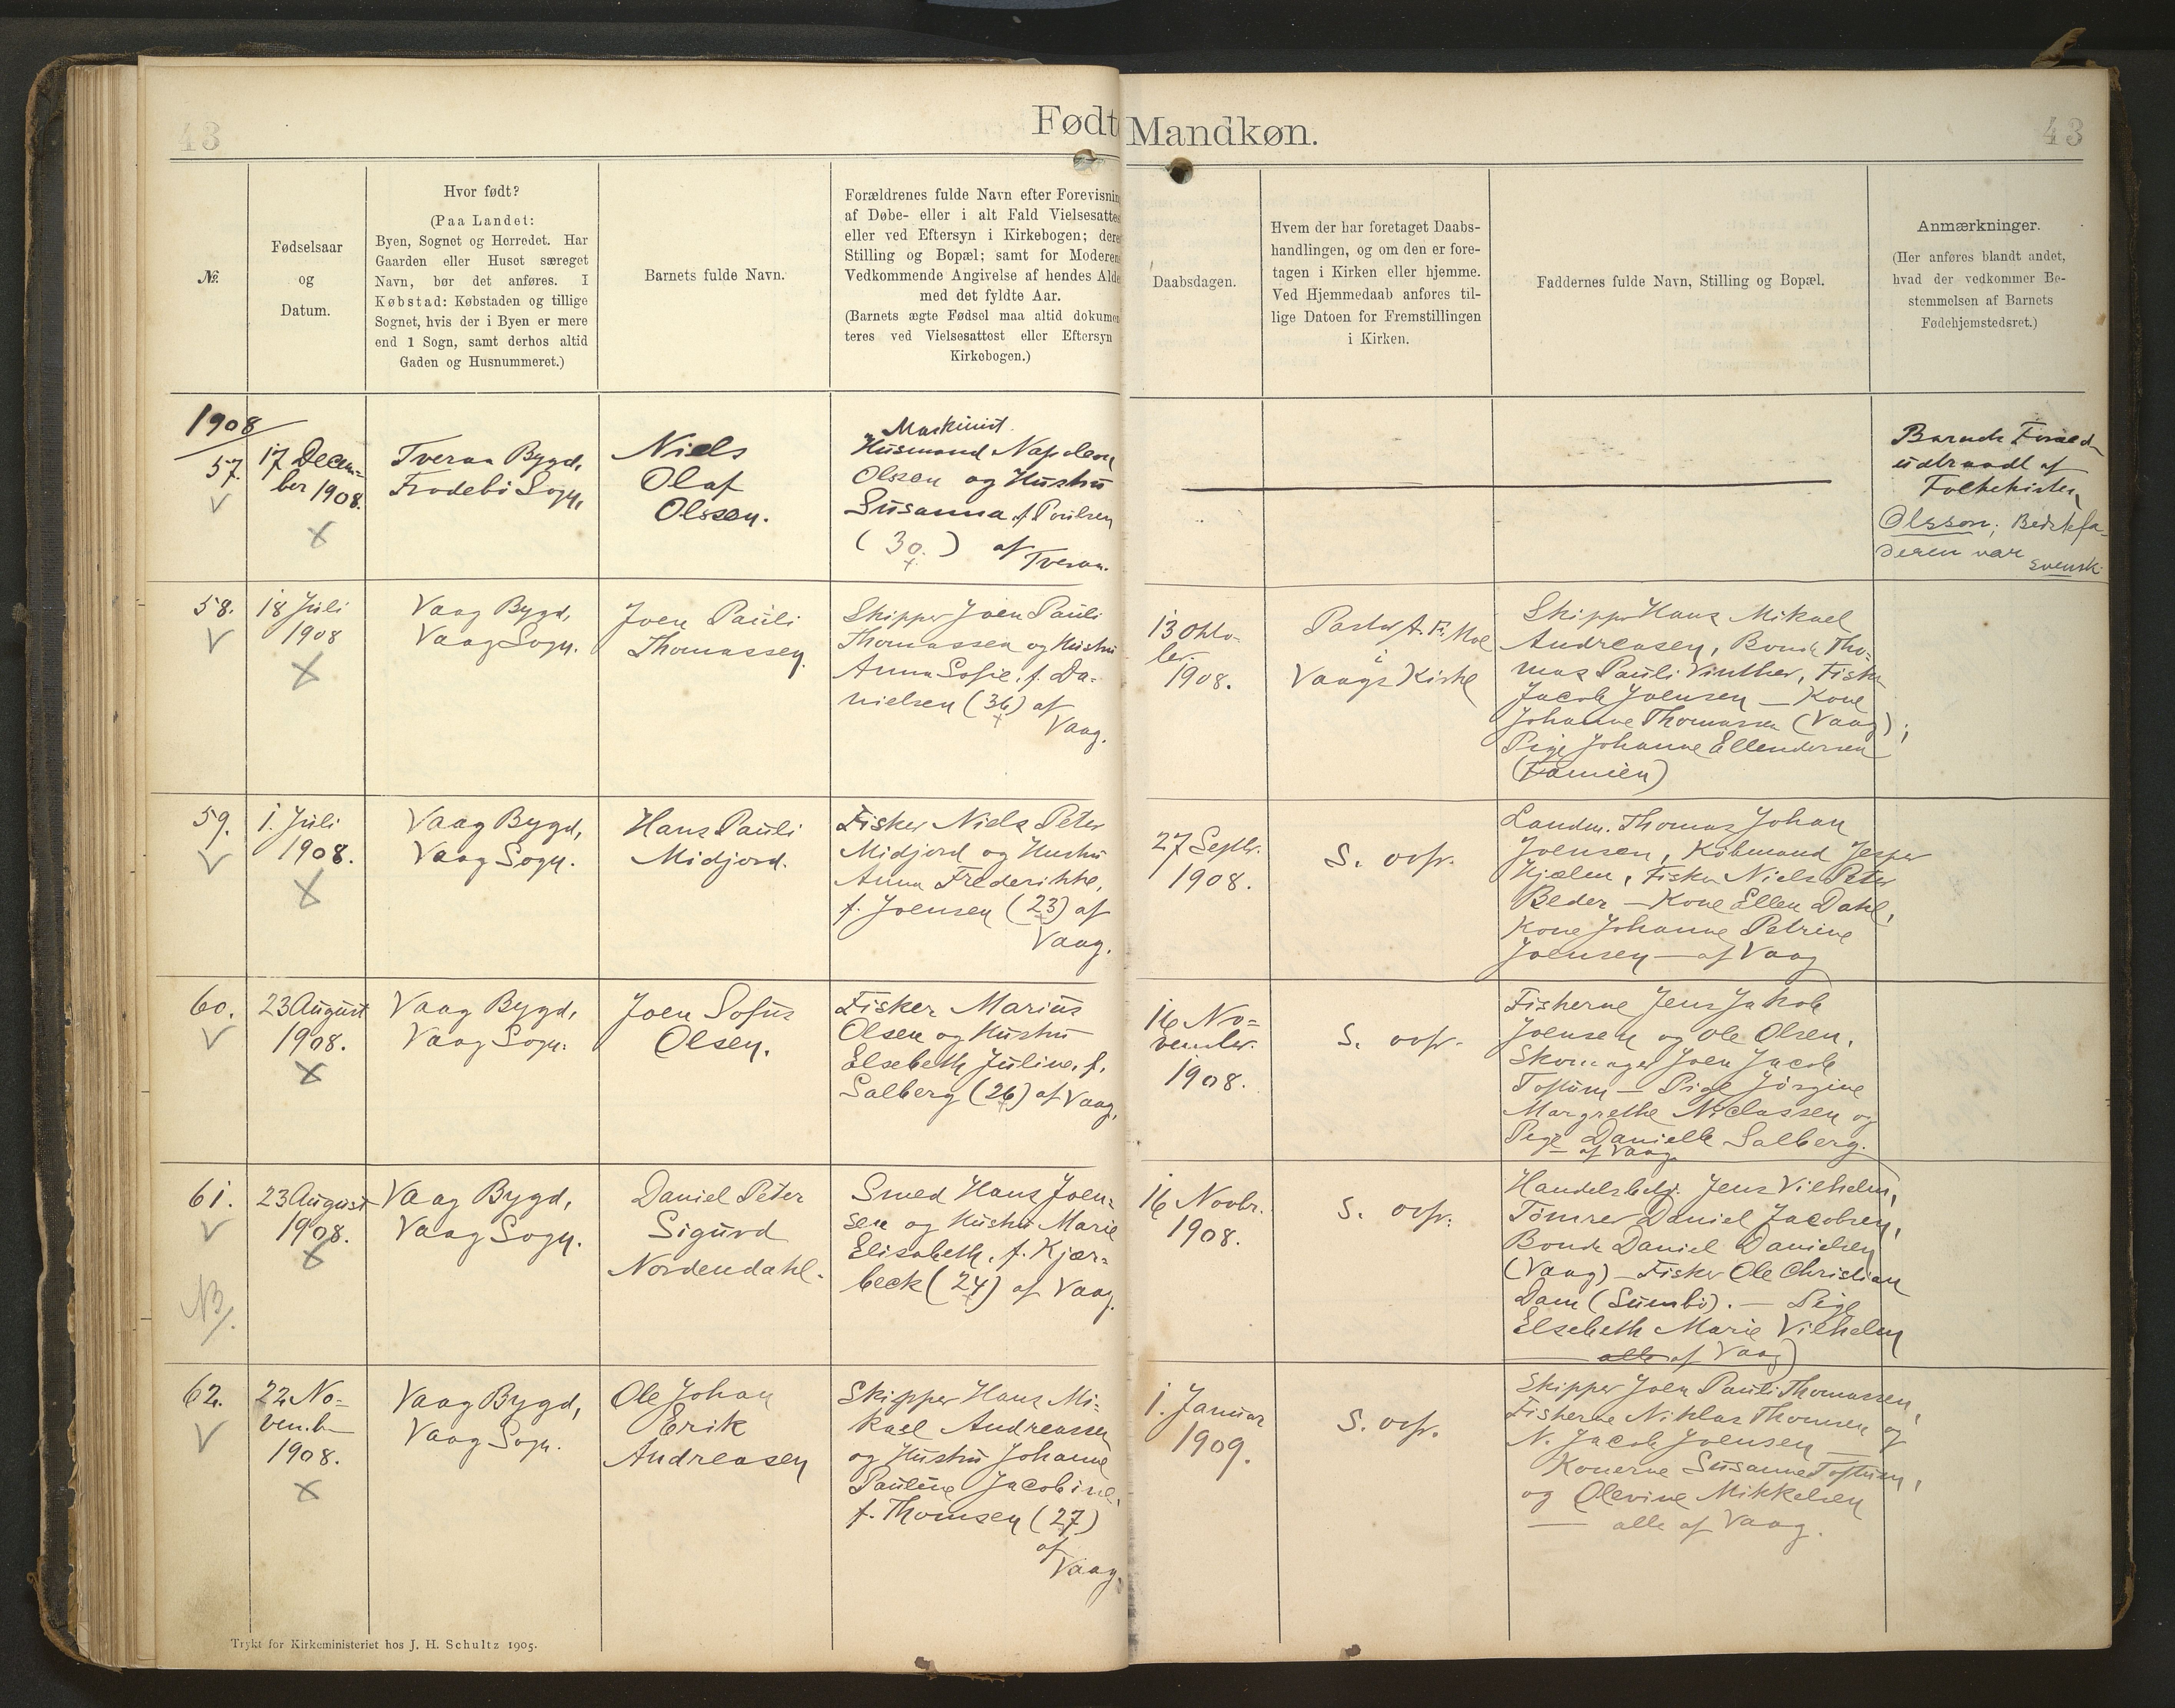 43
Født
Mandkøn.
43
№.
Fødselsaar
og
Datum.
Hvor født?
(Paa Landet:
Byen, Sognet og Herredet. Har
Gaarden eller Huset særeget
Navn, bør det anføres. I
Købstad: Købstaden og tillige
Sognet, hvis der i Byen er mere
end 1 Sogn, samt derhos altid
Gaden og Husnummeret.)
Barnets fulde Navn.
Forældrenes fulde Navn efter Forevisnin
af Døbe- eller i alt Fald Vielsesattes
eller ved Eftersyn i Kirkebogen; dere
Stilling og Bopæl; samt for Moderen
Vedkommende Angivelse af hendes Alde
med det fyldte Aar.
(Barnets ægte Fødsel maa altid dokumen
teres ved Vielsesattest eller Eftersyn
Kirkebogen.)
Daabsdagen.
Hvem der har foretaget Daabs-
handlingen, og om den er fore-
tagen i Kirken eller hjemme.
Ved Hjemmedaab anføres til-
lige Datoen for Fremstillingen
i Kirken.
Faddernes fulde Navn, Stilling og Bopæl.
Anmærkninger.
(Her anføres blandt andet,
hvad der vedkommer Be-
stemmelsen af Barnets
Fødehjemstedsret.)
1908
57.
17 Decem-
ber 1908.
Tveraa Bygd,
Frodebi Sogn,
Niels
Olaf
Olssen.
Maskinist
Husmand Napoleon
Olssen og Hustru
Susanna f. Poulsen
(30.) af
Tveraa.
Barnets Foræld
udtraadt af
Folkekirken
Olsson; Bedstefa-
deren var
svensk.
58.
18 Juli
1908
Vaag Bygd,
Vaag Sogn.
Joen Pauli
Thomassen.
Skipper Joen Pauli
Thomassen og Hustru
Anna Sofie, f. Da-
nielsen (36) af
Vaag.
13 Okto-
ber
1908.
Pastor A. F.
i
Vaags Kirke
Skipper Hans Mikael
Andreasen, Bonde Tho-
mas Pauli Vinther, Fisker
Jacob Joensen — Kone
Johanne Thomassen (Vaag);
Pige Johanne Ellendersen
(Famien)
59.
1. Juli
1908.
Vaag Bygd,
Vaag Sogn.
Hans Pauli
Midjord.
Fisker Niels Peter
Midjord og Hustru
Anna Frederikke,
f. Joensen (23) af
Vaag.
27 Septbr.
1908.
S. ovfr.
Landm. Thomas Johan
Joensen, Købmand Jesper
Kjølen, Fisker Niels Peter
Beder — Kone Ellen Dahl,
Kone Johanne Petrine
Joensen — af Vaag
60.
23 August
1908.
Vaag Bygd,
Vaag Sogn.
Joen Sofus
Olsen.
Fisker Marius
Olsen og Hustru
Elsebeth Juline, f.
Salberg (26) af Vaag.
16 No-
vember
1908.
S. ovfr.
Fiskerne Jens Jakob
Joensen og Ole Olsen,
Skomager Joen Jacob
Toftum — Pige Jörgine
Margrethe Niclassen og
Pige Danielle Salberg.
— af Vaag
61.
NB/.
23 August
1908.
Vaag Bygd,
Vaag Sogn.
Daniel Peter
Sigurd
Nordendahl.
Smed Hans Joen-
sen og Hustru Marie
Elisabeth, f. Kjær-
beck (24) af Vaag.
16 Novbr.
1908.
S. ovfr.
Handelsbetj. Jens Vilhelm,
Tömrer Daniel Jacobsen,
Bonde Daniel Danielsen
(Vaag) — Fisker Ole Christian
Dam (Sumbö). — Pige
Elsebeth Marie Vilhelm
alle af Vaag)
62.
22 No-
vemb
1908.
Vaag Bygd,
Vaag Sogn.
Ole Johan
Erik
Andreasen
Skipper Hans Mi-
kael Andreassen
og Hustru Johanne
Pauline Jacobine,
f. Thomsen (27)
af
Vaag.
1. Januar
1909.
S. ovfr.
Skipper Joen Pauli Thomassen,
Fiskerne Niklas Thomsen og
N. Jacob Joensen —
Konerne Susanne Toftum,
og Olevine Mikkelsen
— alle af Vaag.
Trykt for Kirkeministeriet hos J. H. Schultz 1905.